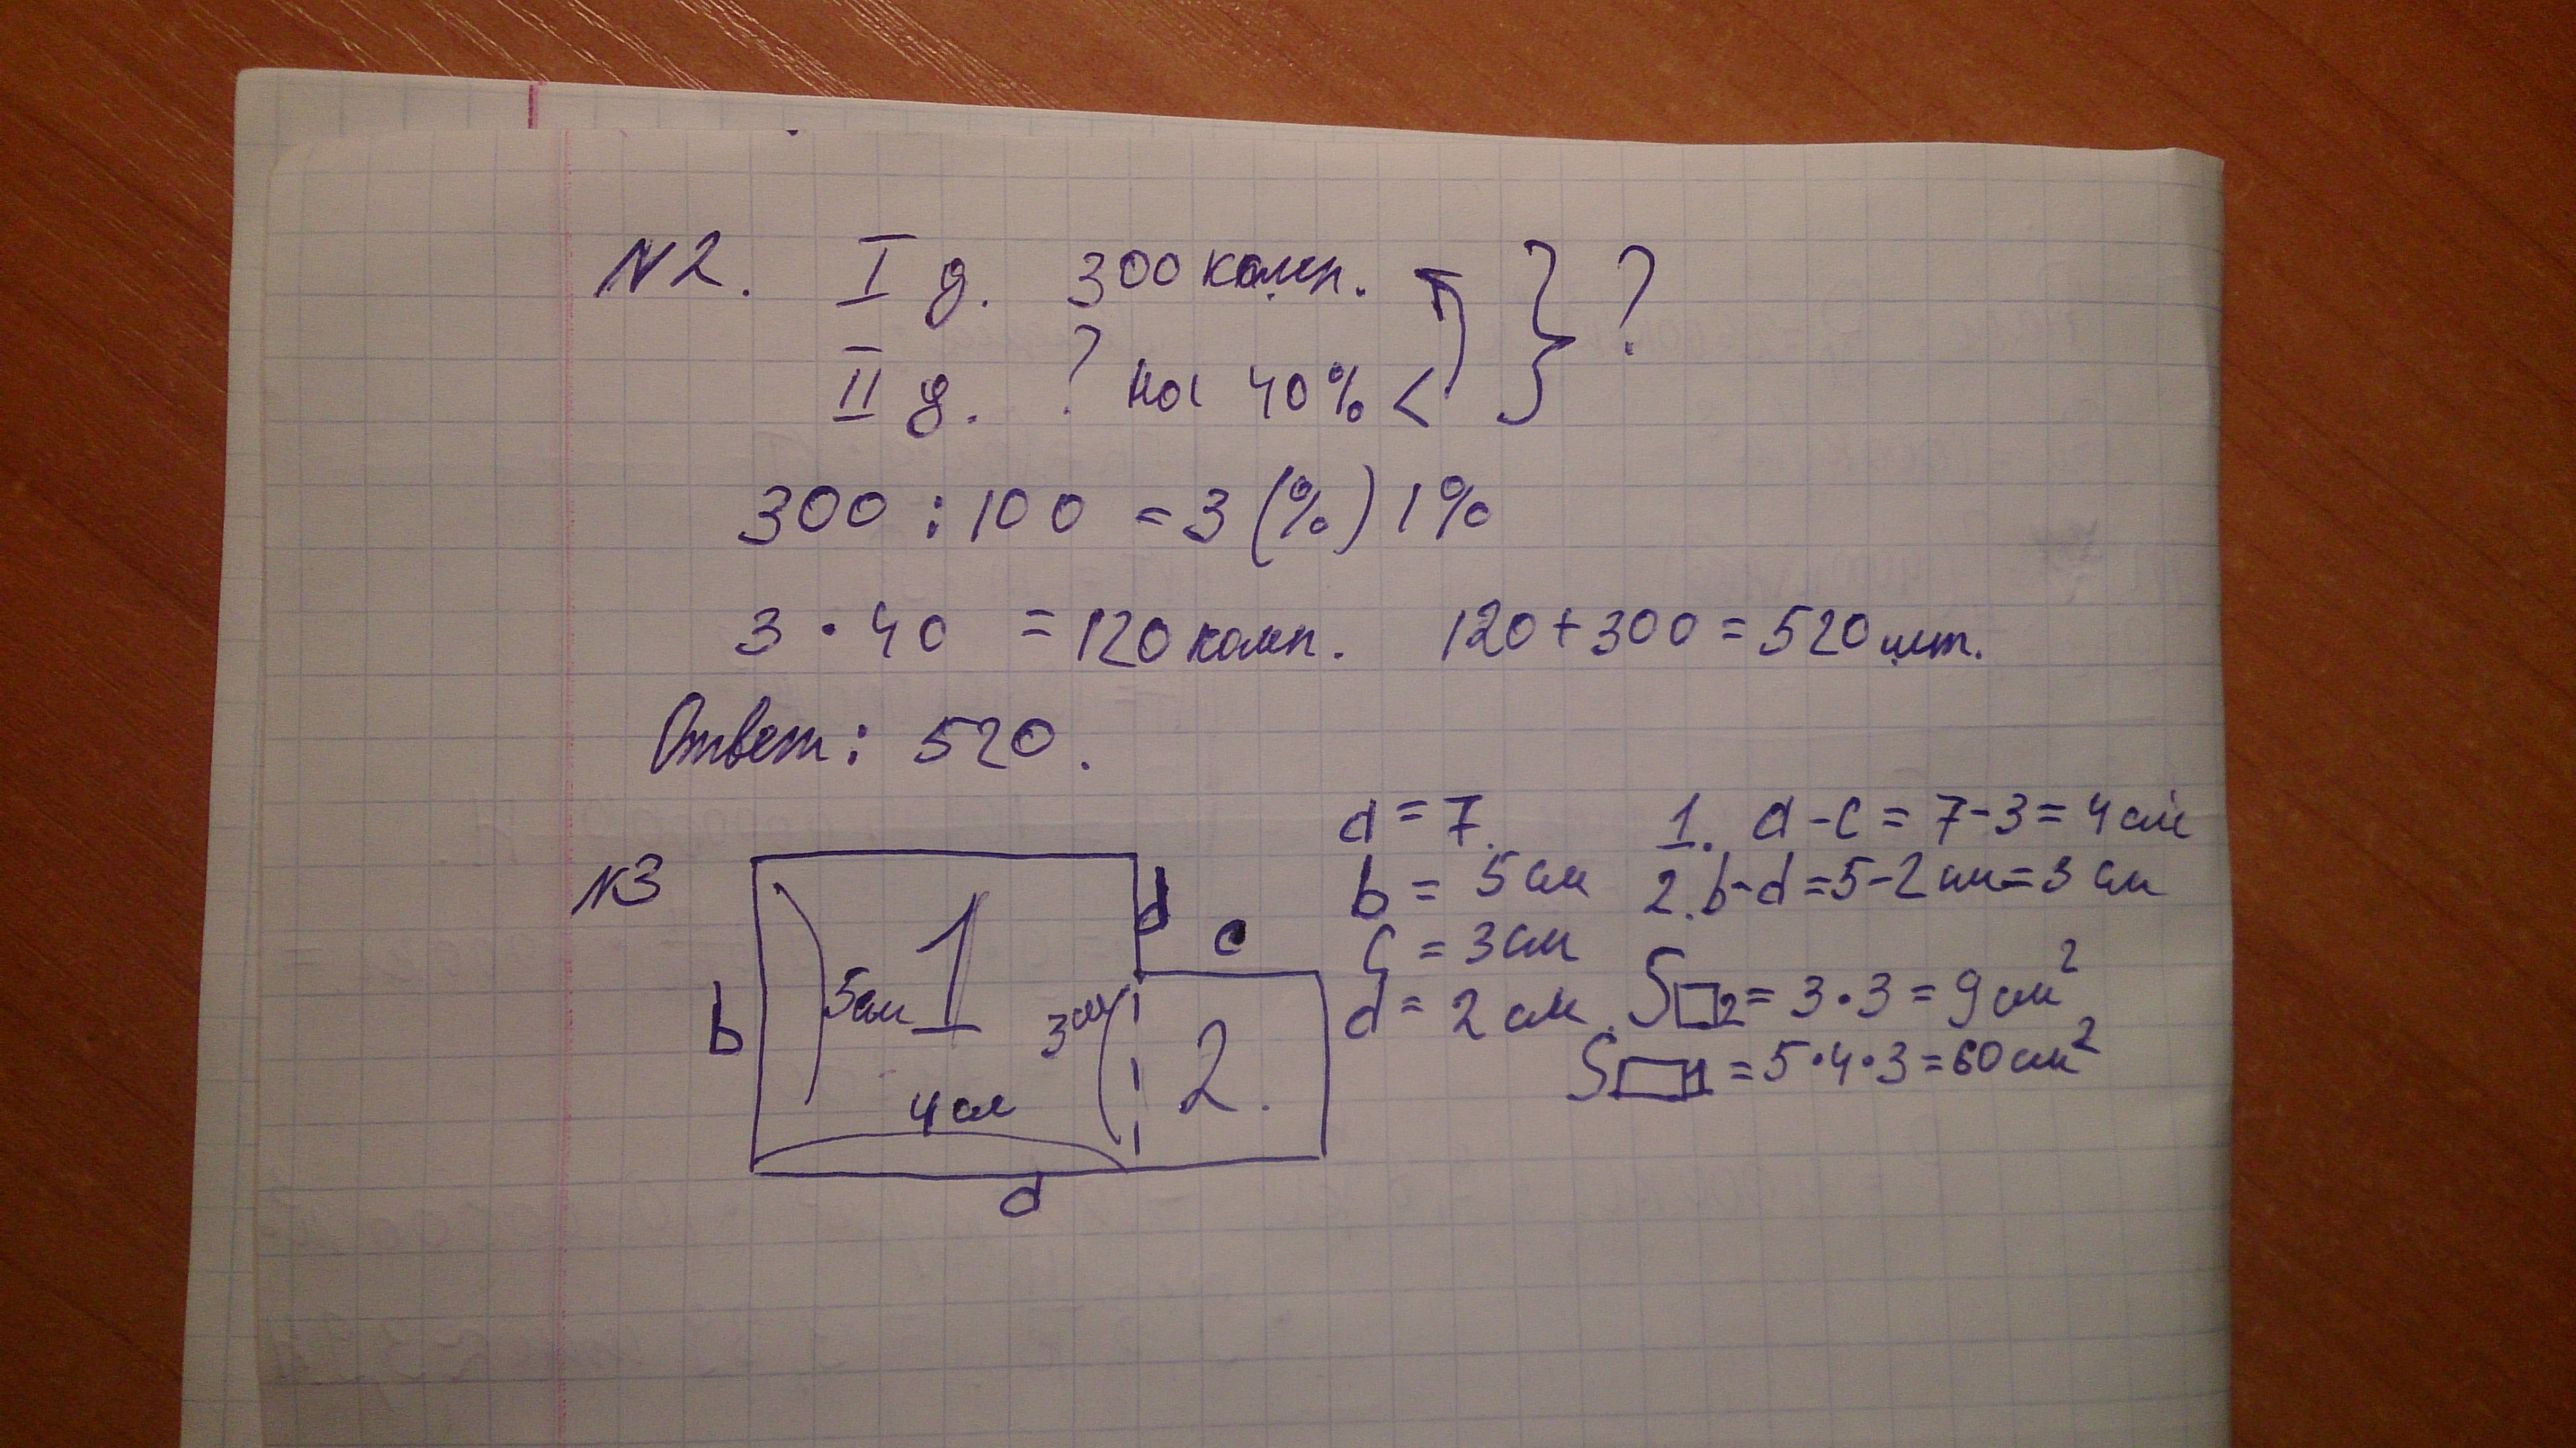 №2. I д. 300 комп. } ?
II д. ? на 40% <
300 : 100 = 3 (%) 1%
3 · 40 = 120 комп. 120 + 300 = 520 шт.
Ответ: 520.
№3
b
5 см
1
3 см
4 см
d
d
c
2.
d = 7.
b = 5 см
c = 3 см
d = 2 см.
1. d - c = 7 - 3 = 4 см
2. b - d = 5 - 2 см = 3 см
S□2 = 3 · 3 = 9 см²
S▭1 = 5 · 4 · 3 = 60 см²